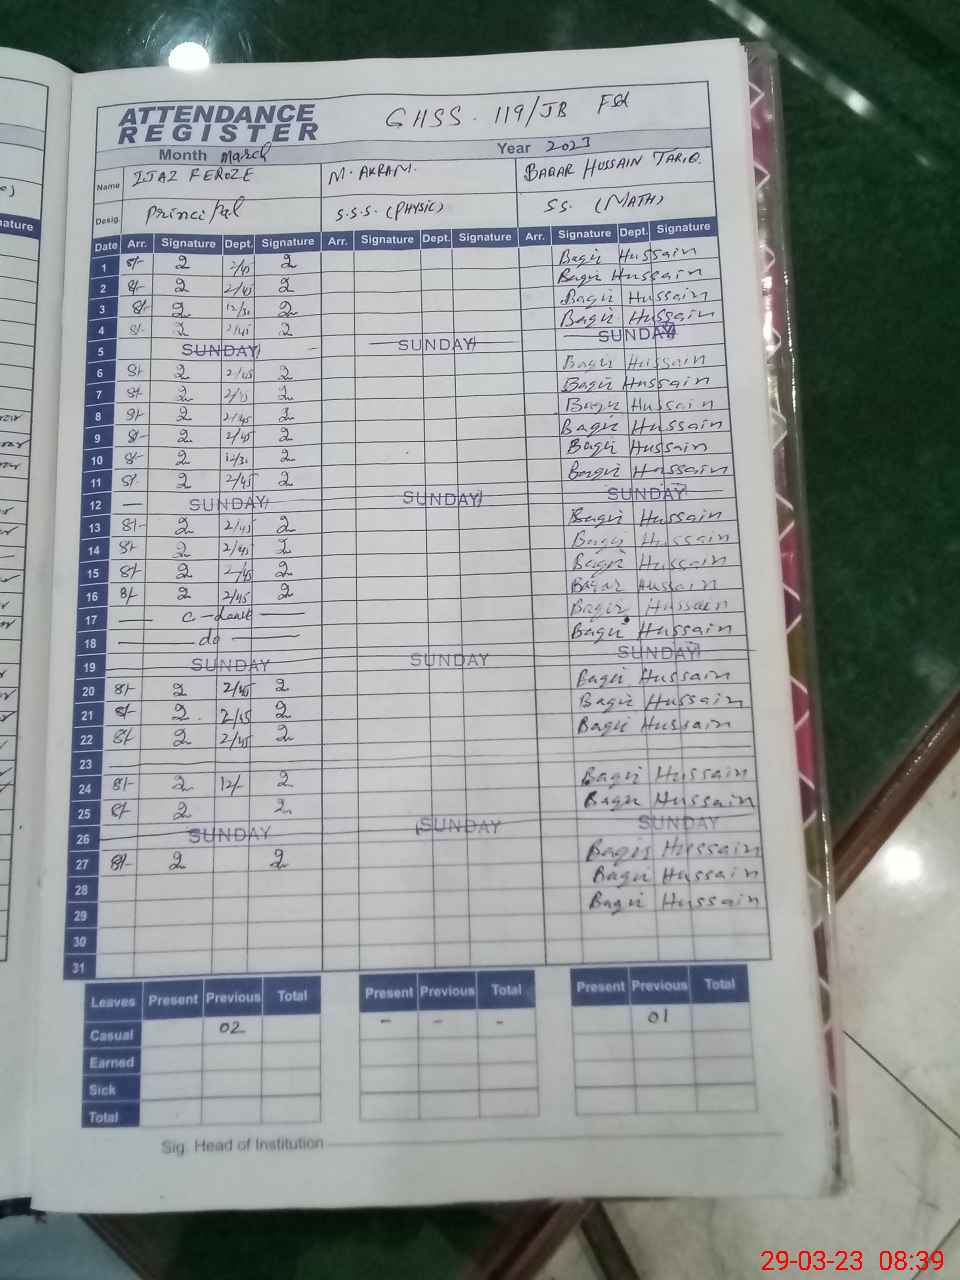 ATTENDANCE
REGISTER
GHSS. 119/JB Fsd
Month March Year 2023
Name IJAZ FEROZE M. AKRAM. BAQAR HUSSAIN TARIQ.
Desig. Principal S.S.S. (PHYSIC) SS. (MATH)
Date Arr. Signature Dept. Signature Arr. Signature Dept. Signature Arr. Signature Dept. Signature
1 8/- 2/45 Baqir Hussain
2 8/- 2/45 Baqir Hussain
3 8/- 12/30 Baqir Hussain
4 8/- 2/45 Baqir Hussain
5 SUNDAY SUNDAY SUNDAY
6 8/- 2/45 Baqir Hussain
7 8/- 2/45 Baqir Hussain
8 8/- 2/45 Baqir Hussain
9 8/- 2/45 Baqir Hussain
10 8/- 12/30 Baqir Hussain
11 8/- 2/45 Baqir Hussain
12 SUNDAY SUNDAY SUNDAY
13 8/- 2/45 Baqir Hussain
14 8/- 2/45 Baqir Hussain
15 8/- 2/45 Baqir Hussain
16 8/- 2/45 Baqar Hussain
17 C-Leave Baqir Hussain
18 do Baqir Hussain
19 SUNDAY SUNDAY SUNDAY
20 8/- 2/45 Baqir Hussain
21 8/- 2/45 Baqir Hussain
22 8/- 2/45 Baqir Hussain
23
24 8/- 12/- Baqir Hussain
25 8/- Baqir Hussain
26 SUNDAY SUNDAY SUNDAY
27 8/- Baqir Hussain
28 Baqir Hussain
29 Baqir Hussain
30
31
Leaves Present Previous Total Present Previous Total Present Previous Total
Casual 02 - - - 01
Earned
Sick
Total
Sig. Head of Institution
29-03-23 08:39